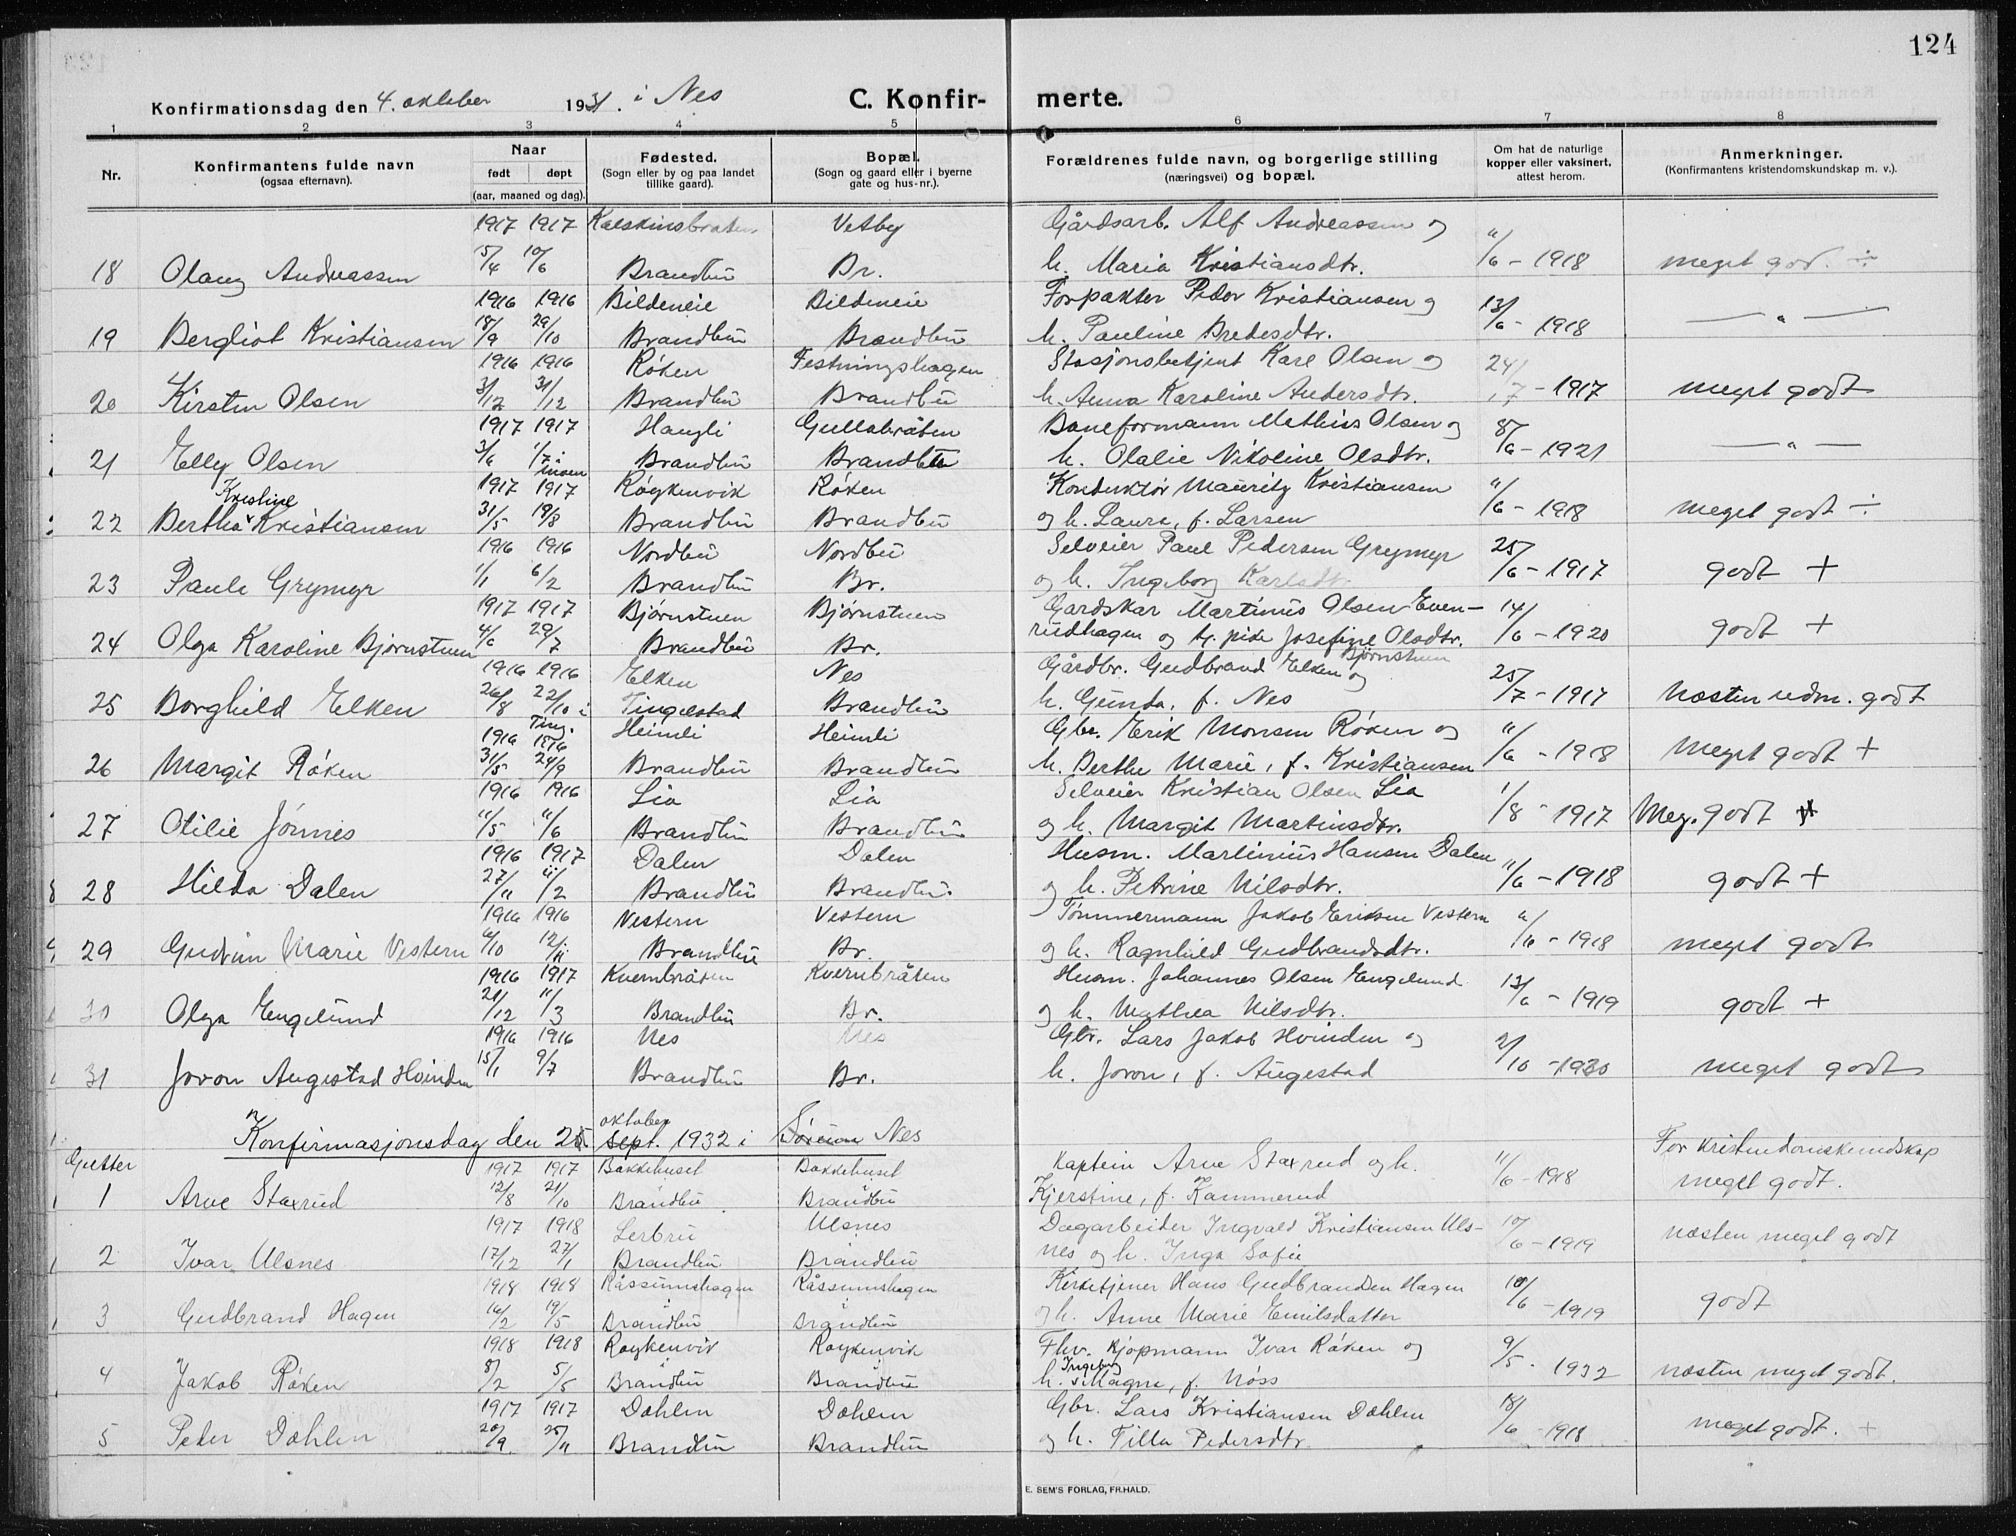 124
Konfirmationsdag den 4. oktober 1931. i Nes
C. Konfir- merte.
1 2 3 4 5 6 7 8
Nr. Konfirmantens fulde navn (ogsaa efternavn). Naar født døpt (aar, maaned og dag). Fødested. (Sogn eller by og paa landet tillike gaard). Bopæl. (Sogn og gaard eller i byerne gate og hus-nr.). Forældrenes fulde navn, og borgerlige stilling (næringsvei) og bopæl. Om hat de naturlige kopper eller vaksinert, attest herom. Anmerkninger. (Konfirmantens kristendomskundskap m. v.).
1917 1917 Vetby Gårdsarb. Alf Andreassen og
18 Olaug Andreassen 15/4 10/6 Brandbu Br. h. Maria Kristiansdtr. 11/6 - 1918 meget god. ÷
1916 1916 Bildeneie Bildeneie Forpakter Peder Kristiansen og
19 Bergliot Kristiansen 18/9 29/10 Brandbu Brandbu h. Pauline Bredesdtr. 13/6 - 1918 — " —
1916 1916 Røken Festningshagen Stasjonsbetjent Karl Olsen og
20 Kirsten Olsen 3/12 31/12 Brandbu Brandbu h. Anna Karoline Andersdtr. 24/7 - 1917 meget godt
1917 1917 Haugli Gullabråten Baneformann Mathius Olsen og
21 Elly Olsen 3/6 1/7 i Brandbu Brandbu h. Olalie Nikoline Olsdtr. 8/6 - 1921 — " —
1917 1917 Røykenvik Røken Konduktør Mauritz Kristiansen
22 Bertha Kristine Kristiansen 31/5 19/8 Brandbu Brandbu og h. Laura, f. Larsen 11/6 - 1918 meget godt ÷
1916 1916 Nordbu Nordbu Selveier Paul Pedersen Grymyr
23 Paula Grymyr 1/1 6/2 Brandbu Br. og h. Ingeborg Karlsdtr. 25/6 - 1917 godt +
1917 1917 Bjørnstuen Bjørnstuen Gardskar Martinus Olsen Even-
24 Olga Karoline Bjørnstuen 4/6 29/7 Brandbu Br. rudhagen og tj. pike Josefine Olsdtr. Bjørnstuen 14/6 - 1920 godt +
1916 1916 Elken Nes Gårdbr. Gudbrand Elken og
25 Borghild Elken 26/8 22/10 i Ting. Tingelstad Brandbu h. Gunda, f. Nes 25/7 - 1917 næsten udm. godt
1916 1916 Heimli Heimli Gbr. Erik Monsen Røken og
26 Margit Røken 31/5 24/9 Brandbu Brandbu h. Berthe Marie, f. Kristiansen 11/6 - 1918 Meget godt +
1916 1916 Lia Lia Selveier Kristian Olsen Lia
27 Otilie Jønnes 11/5 11/6 Brandbu Brandbu og h. Margit Martinsdtr. 1/8 - 1917 Meg. godt +
1916 1917 Dalen Dalen Husm. Martinius Hansen Dalen
28 Hilda Dalen 27/11 11/2 Brandbu Brandbu. og h. Petrine Nilsdtr. 11/6 - 1918 godt +
1916 1916 Vestern Vestern Tømmermann Jakob Eriksen Vestern
29 Gudrun Marie Vestern 6/10 12/11 Brandbu Br. og h. Ragnhild Gudbrandsdtr. 11/6 - 1918 meget godt
1916 1917 Kvernbråten Kvernbråten Husm. Johannes Olsen Engelund
30 Olga Engelund 21/12 11/3 Brandbu Br. og h. Mathea Nilsdtr. 13/6 - 1919 godt +
1916 1916 Nes Nes Gbr. Lars Jakob Hvinden og
31 Joron Augestad Hvinden 15/1 9/7 Brandbu Br. h. Joron, f. Augestad 2/10 - 1930 meget godt
Konfirmasjonsdag den 2. sept. oktober 1932 i Nes
Gutter For kristendomskundskap
1917 1917 Bakkehusel Bakkehusel Kaptein Arve Staxrud og h.
1 Arve Staxrud 12/8 21/10 Brandbu Brandbu Kjerstine, f. Kammerud 11/6 - 1918 meget godt.
1917 1918 Lerbru Ulsnes Dagarbeider Ingvald Kristiansen Uls-
2 Ivar Ulsnes 17/12 27/1 Brandbu Brandbu nes og h. Inga Sofie 10/6 - 1919 næsten meget godt
1918 1918 Råssumshagen Råssumshagen Kirketjener Hans Gudbrandsen Hagen
3 Gudbrand Hagen 16/2 19/5 i Brandbu i Brandbu og h. Anne Marie Emilsdatter 10/6 - 1919 godt
1918 1918 Røykenvik Røykenvik Fhv. kjøpmann Ivar Røken og
4 Jakob Røken 8/2 5/5 i Brandbu i Brandbu h. Ingeborg Magna, f. Næss 9/5 - 1932 næsten meget godt.
1917 1917 Dæhlen Dæhlen Gbr. Lars Kristiansen Dæhlen
5 Peder Dæhlen 20/9 25/11 Brandbu Brandbu og h. Tilla Pedersdtr. 18/6 - 1918 meget godt. +
E. SEM'S FORLAG, FR.HALD.